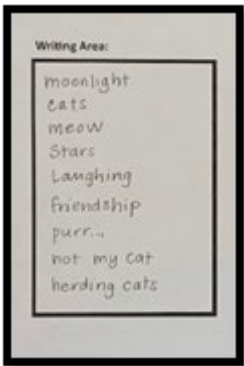 Writing Area:
moonlight
cats
meow
Stars
Laughing
friendship
purr...
not my cat
herding cats